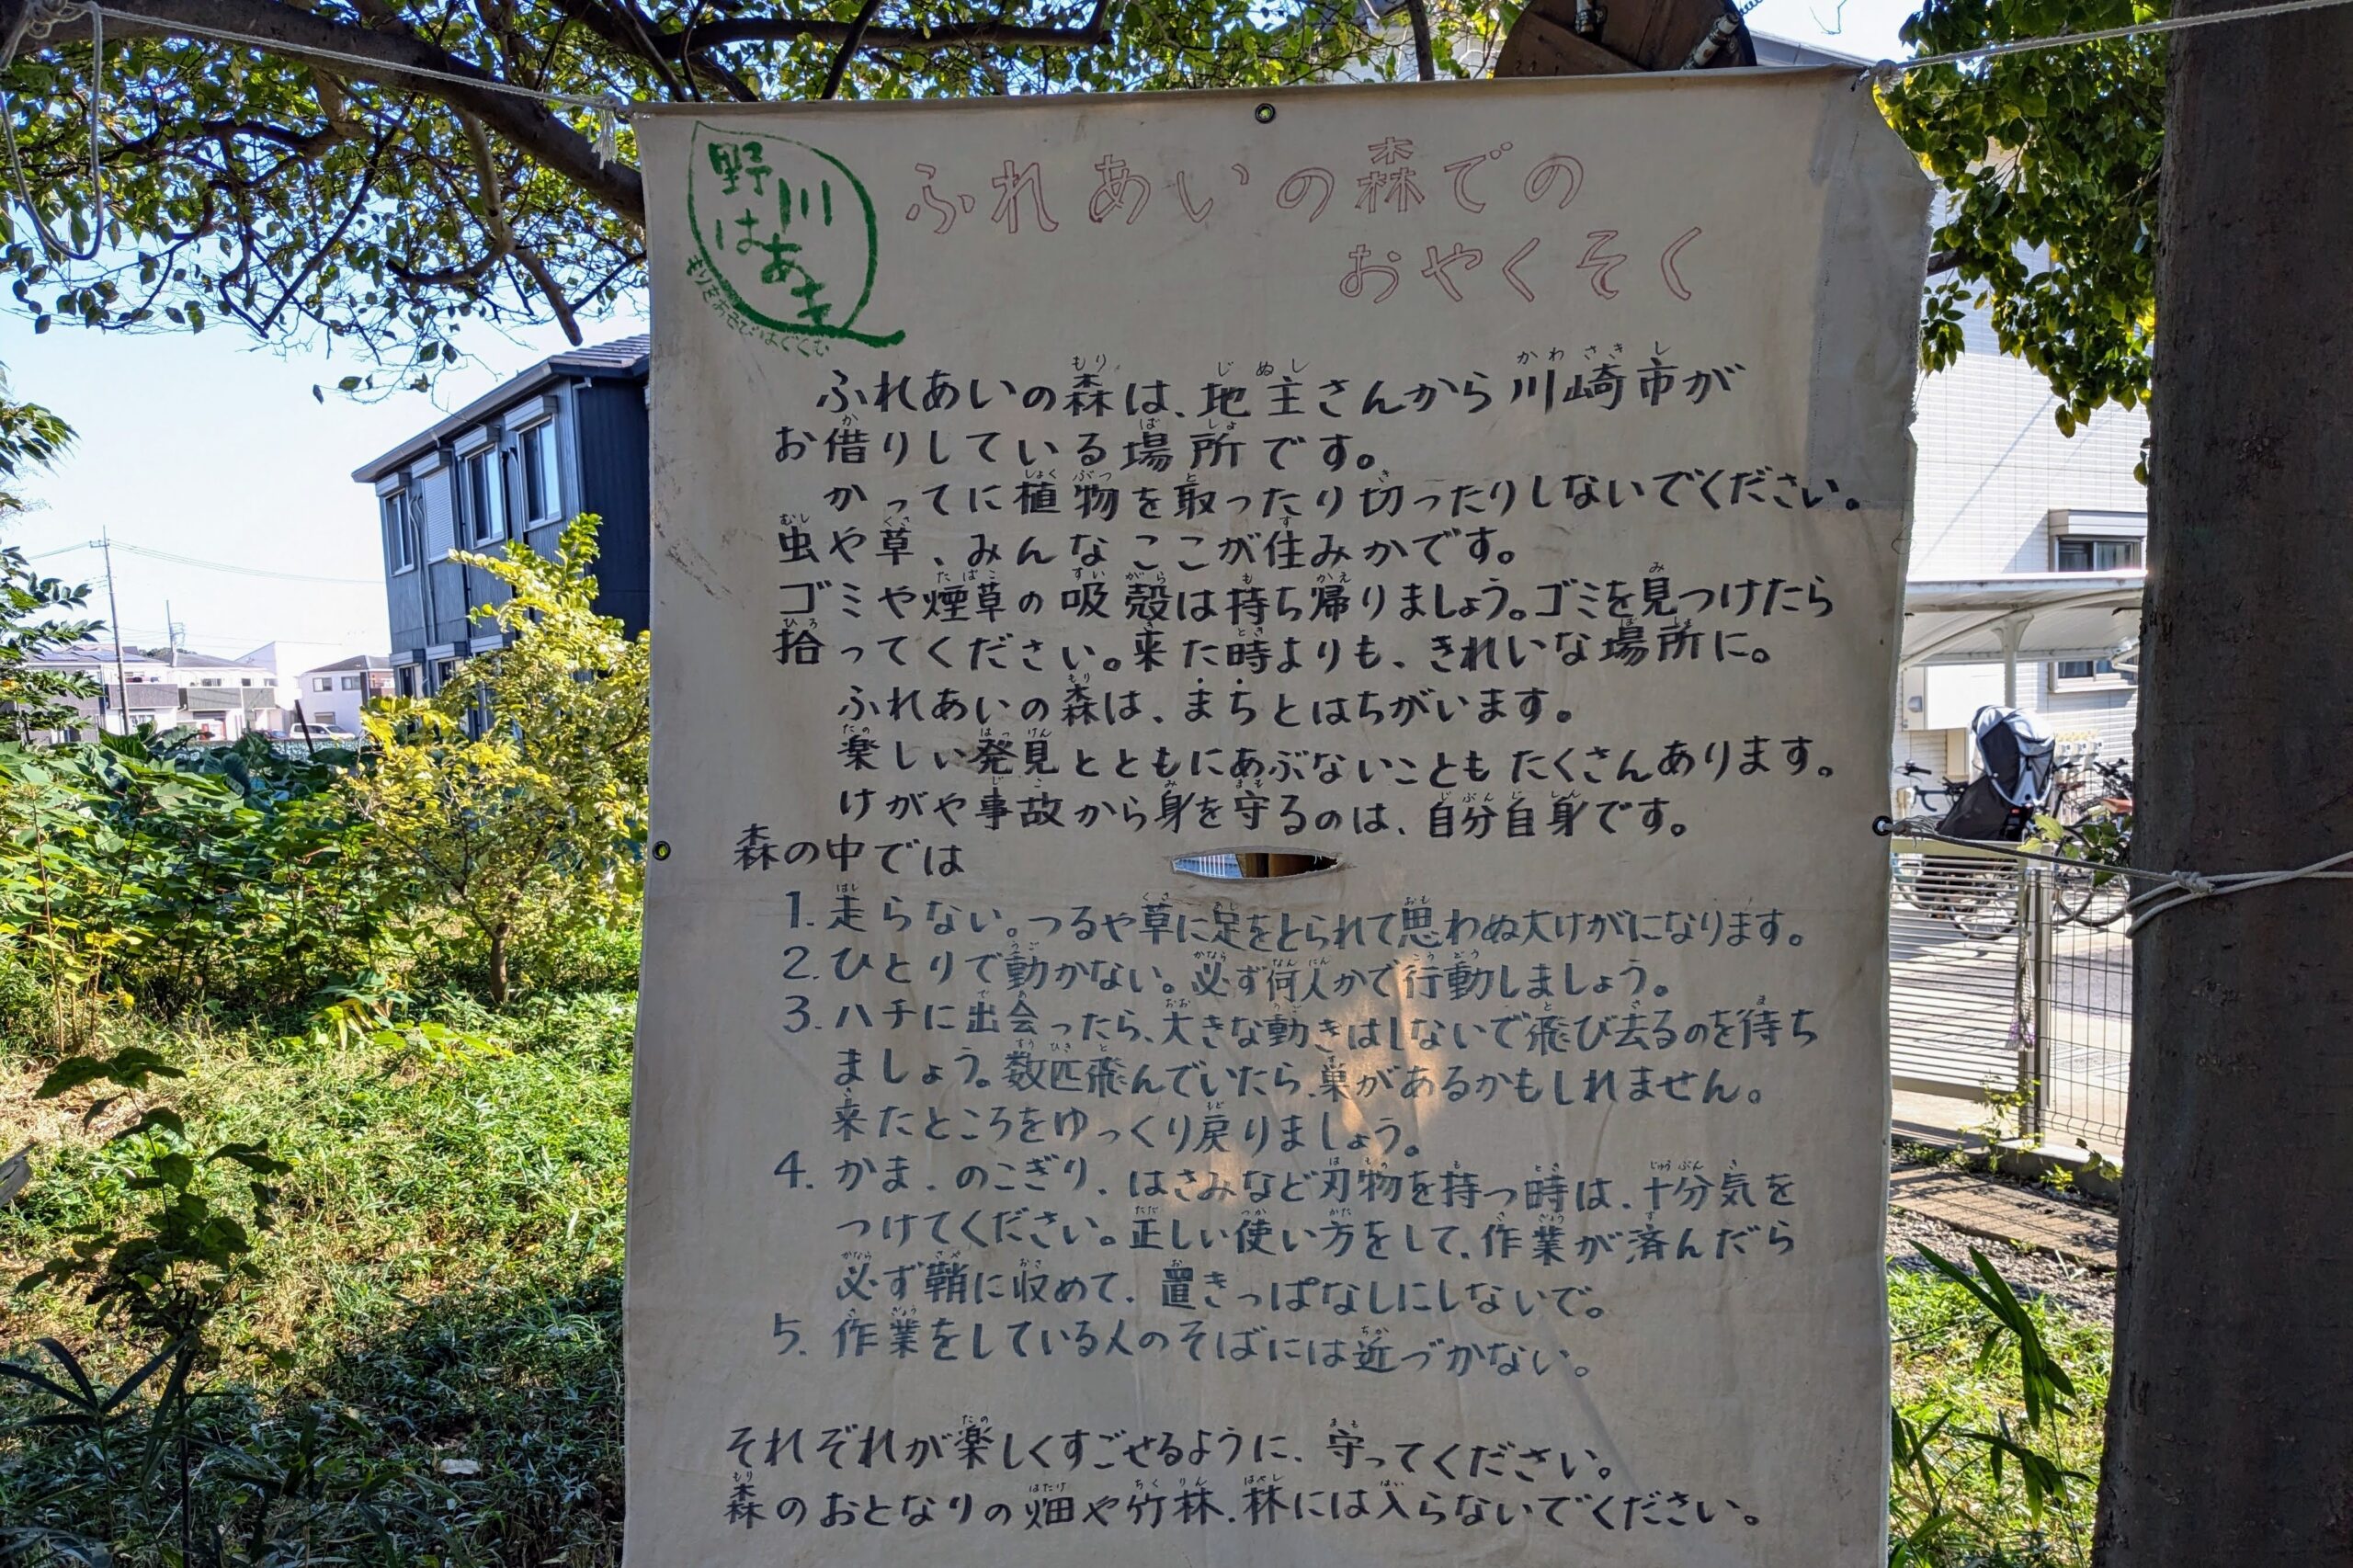 野川
はあも
もりをあそびはぐくむ
ふれあいの森での
おやくそく
ふれあいの森は、地主さんから川崎市が
お借りしている場所です。
かってに植物を取ったり切ったりしないでください。
虫や草、みんなここが住みかです。
ゴミや煙草の吸殻は持ち帰りましょう。ゴミを見つけたら
拾ってください。来た時よりも、きれいな場所に。
ふれあいの森は、まちとはちがいます。
楽しい発見とともにあぶないこともたくさんあります。
けがや事故から身を守るのは、自分自身です。
森の中では
1. 走らない。つるや草に足をとられて思わぬ大けがになります。
2. ひとりで動かない。必ず何人かで行動しましょう。
3. ハチに出会ったら、大きな動きはしないで飛び去るのを待ち
ましょう。数匹飛んでいたら、巣があるかもしれません。
来たところをゆっくり戻りましょう。
4. かま、のこぎり、はさみなど刃物を持つ時は、十分気を
つけてください。正しい使い方をして、作業が済んだら
必ず鞘に収めて、置きっぱなしにしないで。
5. 作業をしている人のそばには近づかない。
それぞれが楽しくすごせるように、守ってください。
森のおとなりの畑や竹林、林には入らないでください。